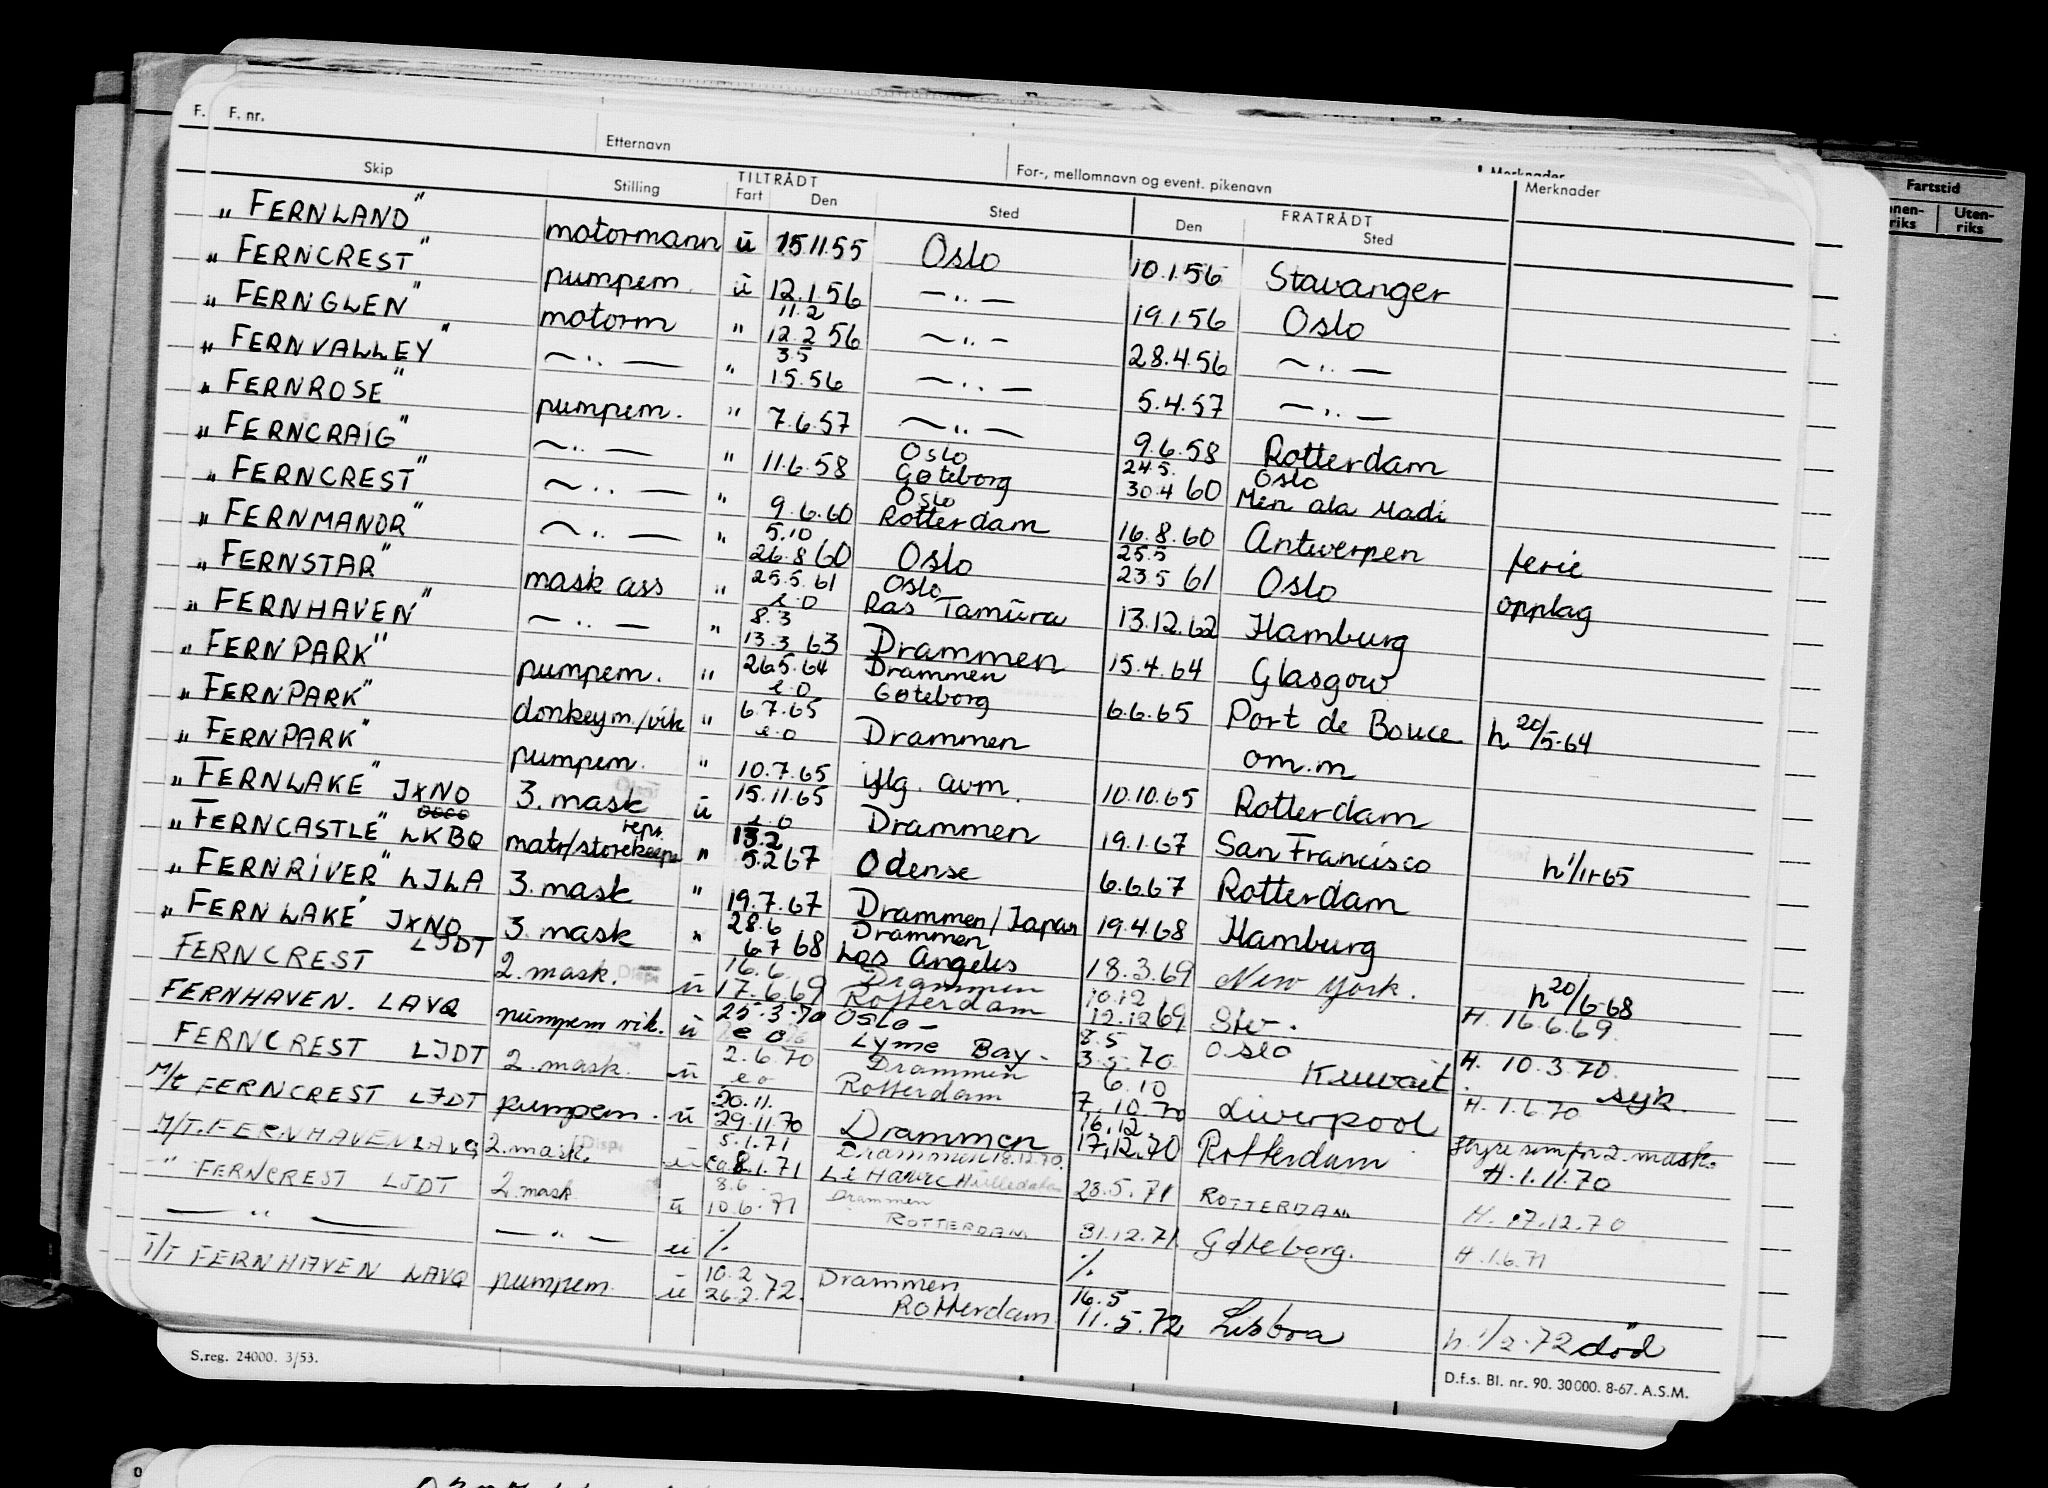 F. F. nr. Etternavn For-, mellomnavn og event. pikenavn Merknader
Skip Stilling TILTRÅDT FRATRÅDT Merknader Fartstid
Fart Den Sted Den Sted Innen-riks Uten-riks
„ FERNLAND" motormann ū 15.11.55 Oslo 10.1.56 Stavanger
„ FERNCREST" pumpem. ū 12.1.56 — „ — 19.1.56 Oslo
„ FERNGLEN" motorm " 11.2 12.2 56 — „ — 28.4.56 — „ —
„ FERNVALLEY" — „ — " 3.5 1.5.56 — „ — 5.4.57 — „ —
„ FERNROSE" pumpem. " 7.6.57 — „ — 9.6.58 Rotterdam
„ FERNCRAIG" — „ — " 11.6.58 Oslo Gøteborg 24.5. 30.4 60 Oslo Men ala Madi
„ FERNCREST" — „ — " 9.6.60 Oslo Rotterdam 16.8.60 Antwerpen ferie
„ FERNMANOR" — „ — " 5.10 26.8 60 Oslo 25.5 23.5 61 Oslo opplag
„ FERNSTAR" mask ass " 25.5.61 e.o Oslo Ras Tamūra 13.12.62 Hamburg
„ FERNHAVEN" — „ — " 8.3 13.3 63 Drammen 15.4.64 Glasgow
„ FERNPARK" pumpem. " 26.5.64 e.o Drammen Gøteborg 6.6.65 Port de Bouce h 20/5-64
„ FERNPARK" donkeym./vik " 6.7.65 e.o Drammen om.m
„ FERNPARK" pumpem. " 10.7.65 iflg. avm. 10.10.65 Rotterdam
„ FERNLAKE" JXNO 3. mask ū 15.11.65 e.o Drammen 19.1.67 San Francisco h 1/11-65
„ FERNCASTLE" LKBQ matr/storekeeper rep. " 13.2 5.2 67 Odense 6.6.67 Rotterdam
„ FERNRIVER" LJLA 3. mask " 19.7.67 Drammen/Japan 19.4.68 Hamburg
„ FERNLAKE" JXNO 3. mask " 28.6 6.7 68 Drammen Los Angeles 18.3.69 New York. h 20/6-68
FERNCREST LJDT 2. mask. ū 16.6. 17.6.69 Drammen Rotterdam 10.12 12.12 69 H. 16.6.69.
FERNHAVEN. LAVQ pumpem vik. ū 25.3.70 e o Oslo - Lyme Bay - 8.5 3.5.70 Oslo Kuwait H. 10.3.70. syk.
FERNCREST LJDT 2. mask. ū 2.6.70 e o Drammen Rotterdam 6.10 7.10.70 Liverpool H. 1.6.70
M/t FERNCREST LJDT pumpem. ū 20.11. 29.11.70 Drammen 16.12. 17.12.70 Rotterdam Hyre som for 2. mask. H. 1.11.70
M/T. FERNHAVEN LAVQ 2. mask. ū 5.1.71 ca 8.1.71 Drammen 18.12.70. Le Havre 28.5.71 ROTTERDAM H. 17.12.70
-"- FERNCREST LJDT 2. mask. ū 8.6. 10.6.71 Drammen ROTTERDAM 31.12.71 Gøteborg. H. 1.6.71
— „ — — „ — ū ./. ./.
T/T FERNHAVEN LAVQ pumpem. ū 10.2 26.2.72. Drammen Rotterdam 16.5 11.5.72 Lisboa h. 1/2-72 död
S.reg. 24000. 3/53.
D.f.s. Bl. nr. 90. 30000. 8-67. A.S.M.